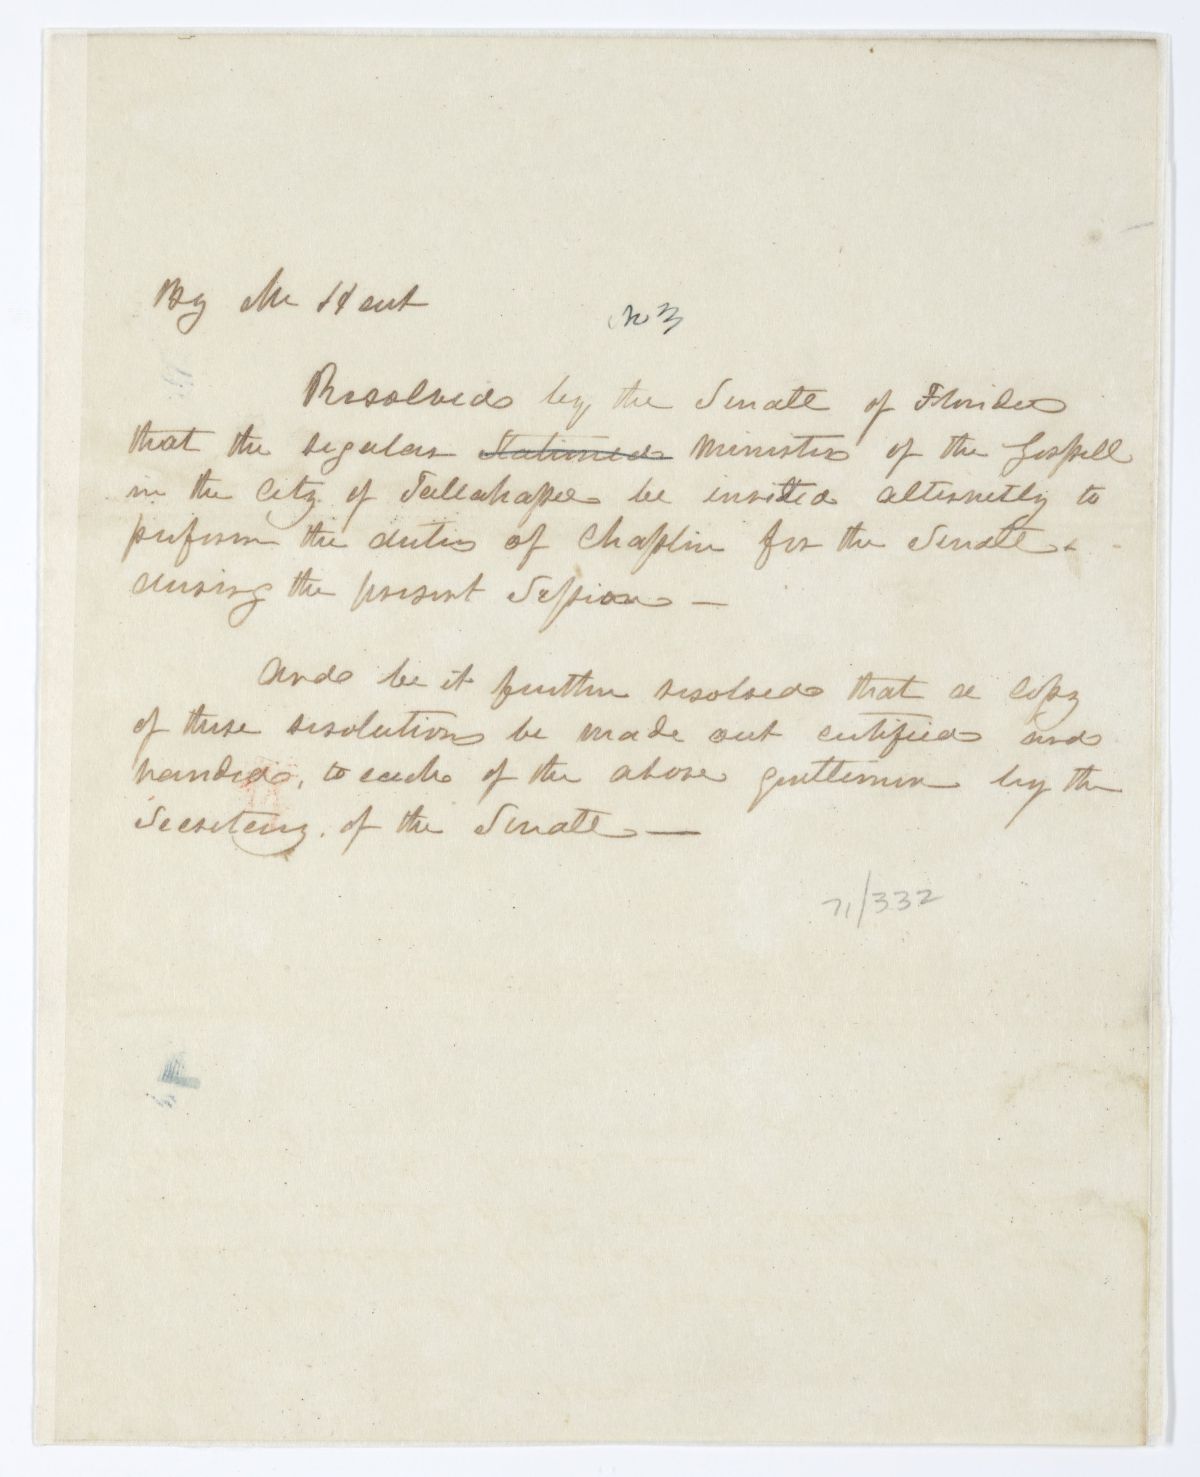 By Mr Hart
No 3
Resolved by the Senate of Florida
that the regular stationed Ministers of the Gospell
in the City of Tallahassee be invited alternetly to
perform the duties of Chaplin for the Senate
during the present Session —
And be it further resolved that a Copy
of these resolutions be made out certified and
handed, to each of the above gentlemen by the
Secretary of the Senate —
71/332